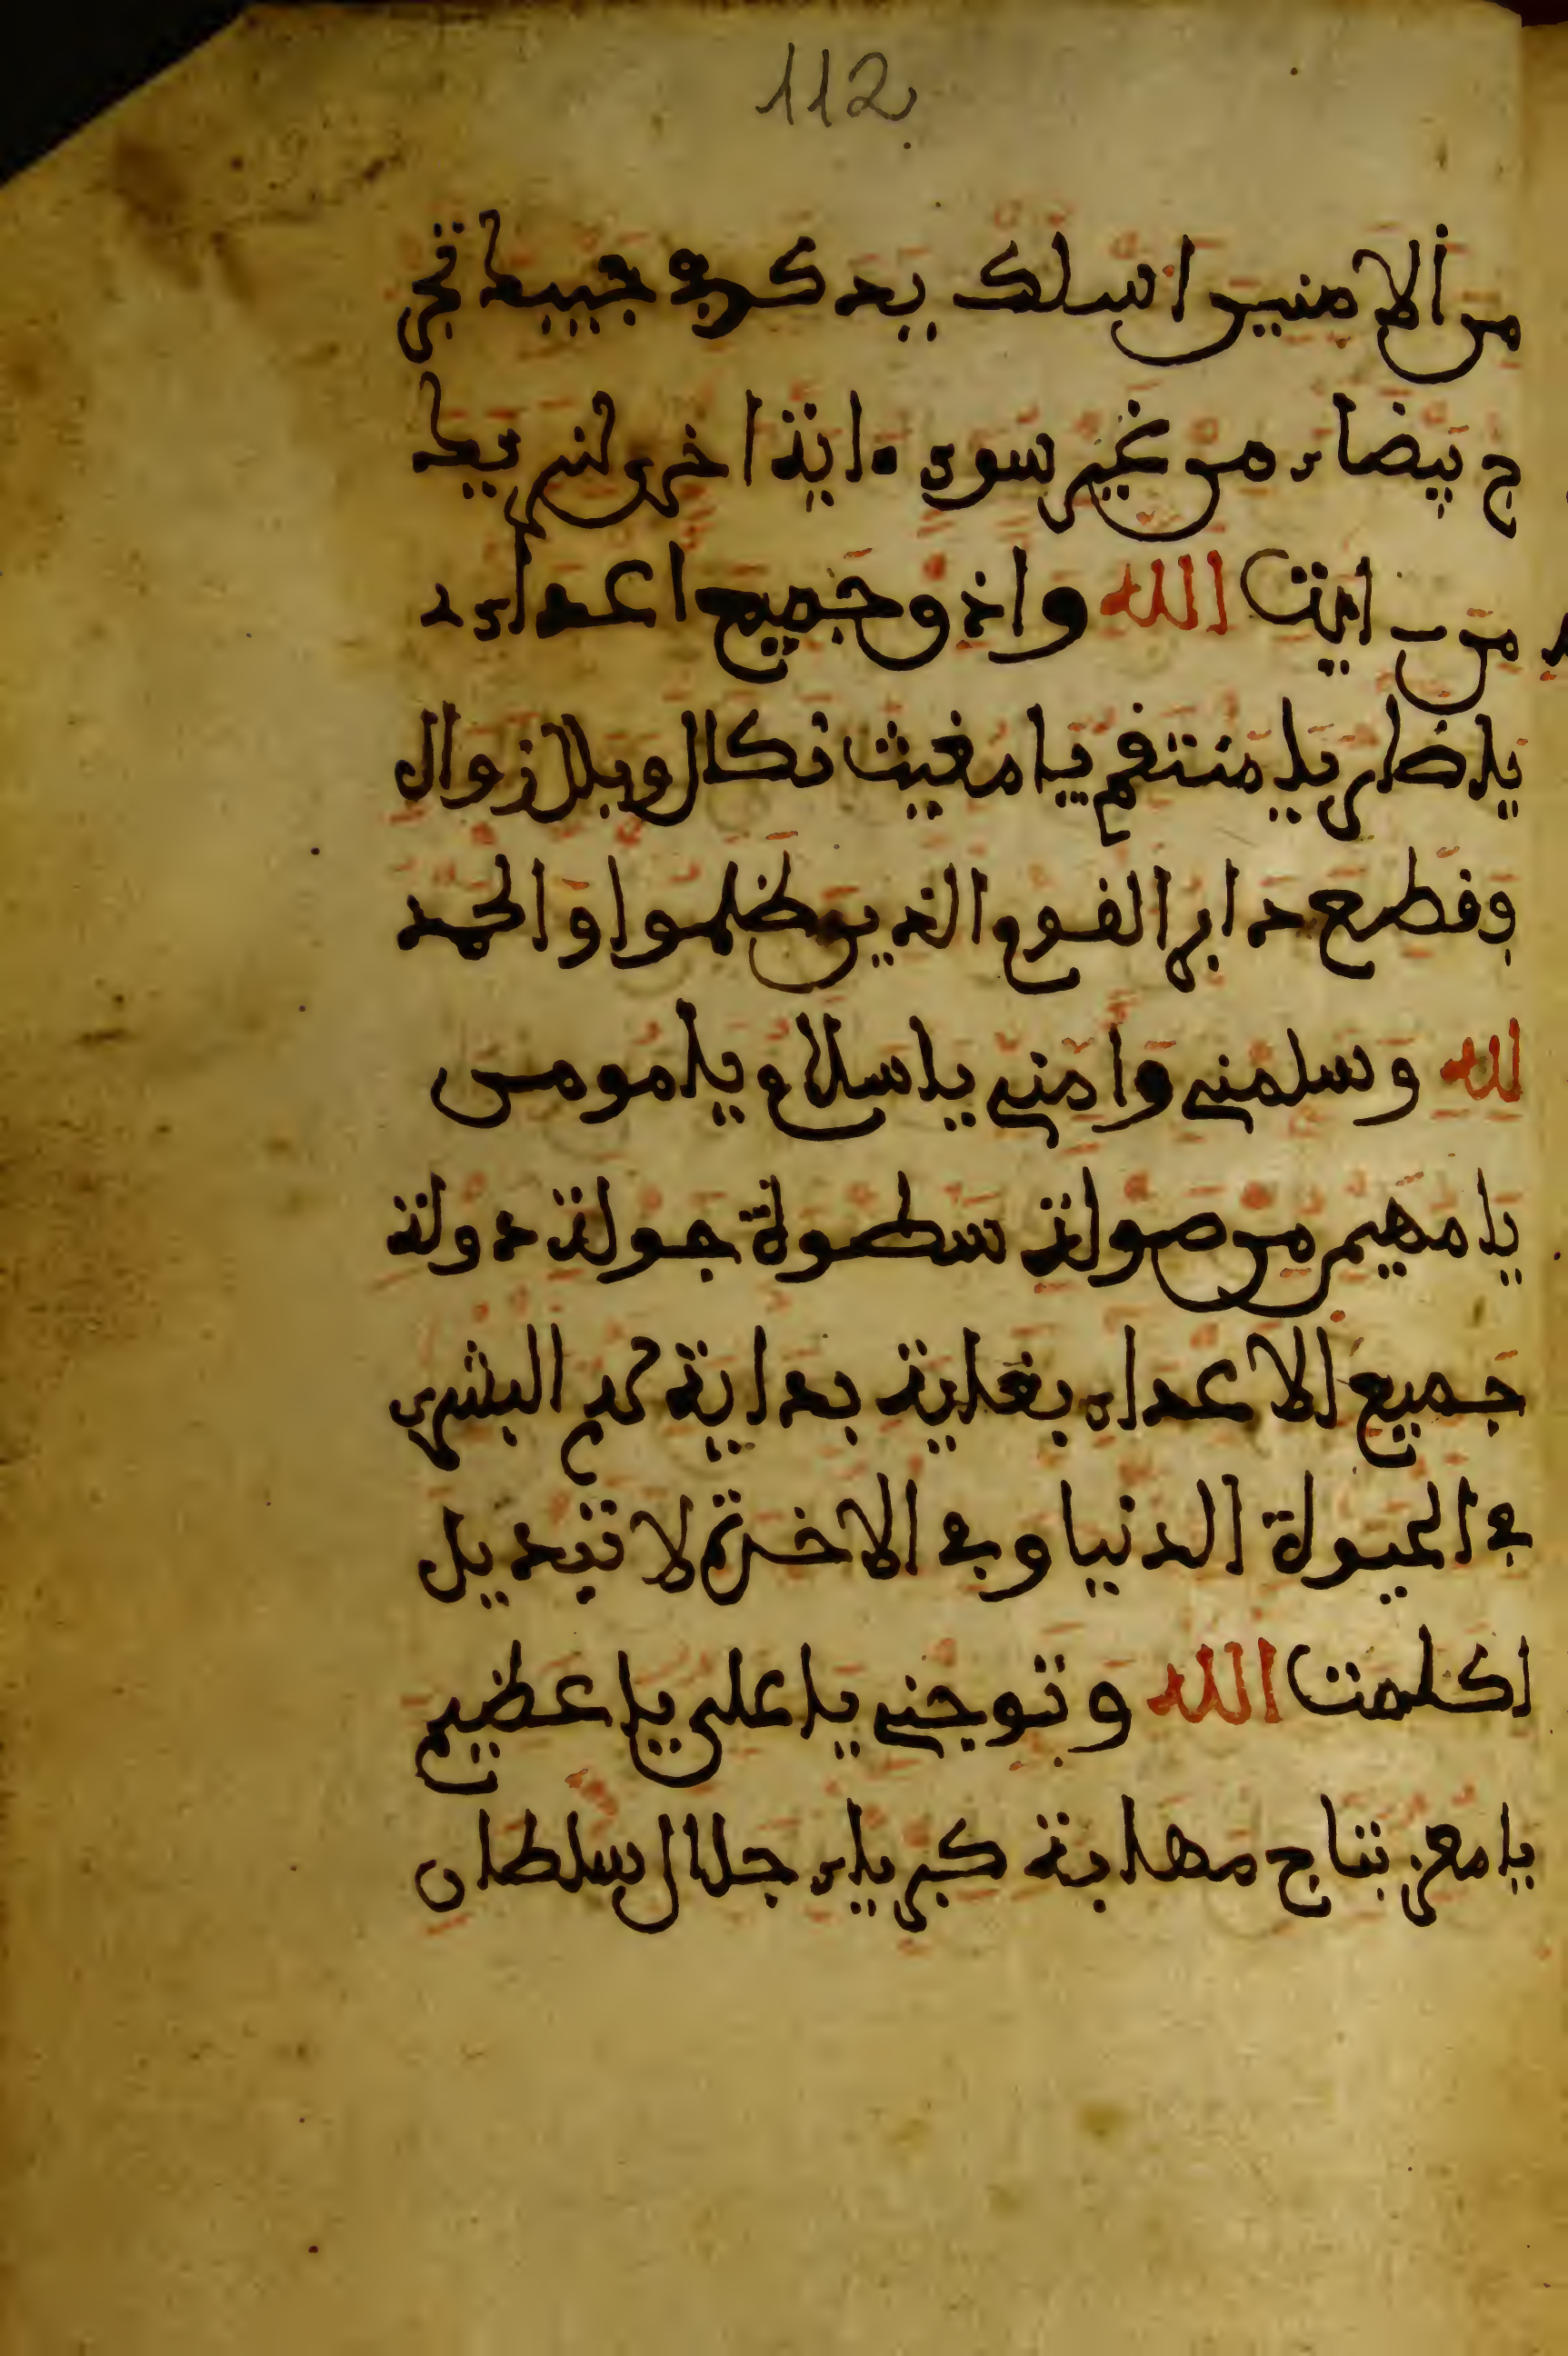 112
من الامنين اسلك يدك في جيبك تخر
ج بيضاء من غير سوء ءاية اخرى لنريك
من ايت الله واذ و جميع اعداءى
يا ضار يا منتقم يا مغيث نكال وبال زوال
وقطع دابر القوم الذين ظلموا والحمد
لله وسلمنى وامنى يا سلام يا مومن
يا مهيمن من صولة سطوة جولة دولة
جميع الاعداء بغاية بداية لهم البشرى
في الحيوة الدنيا وفي الاخرة لا تبديل
لكلمت الله وتوجنى يا على يا عظيم
يا معز بتاج مهابة كبرياء جلال سلطان